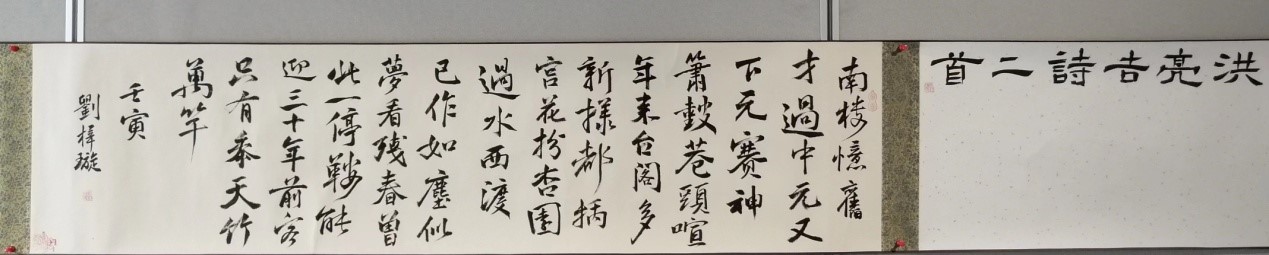 洪亮吉詩二首
南楼憶舊
才過中元又
下元賽神
簫鼓巷頭喧
年来台閣多
新様都插
宫花扮杏園
過水西渡
已作如塵似
夢看殘春曾
此一停鞍能
迎三十年前客
只有參天竹
萬竿
壬寅
劉梓璇